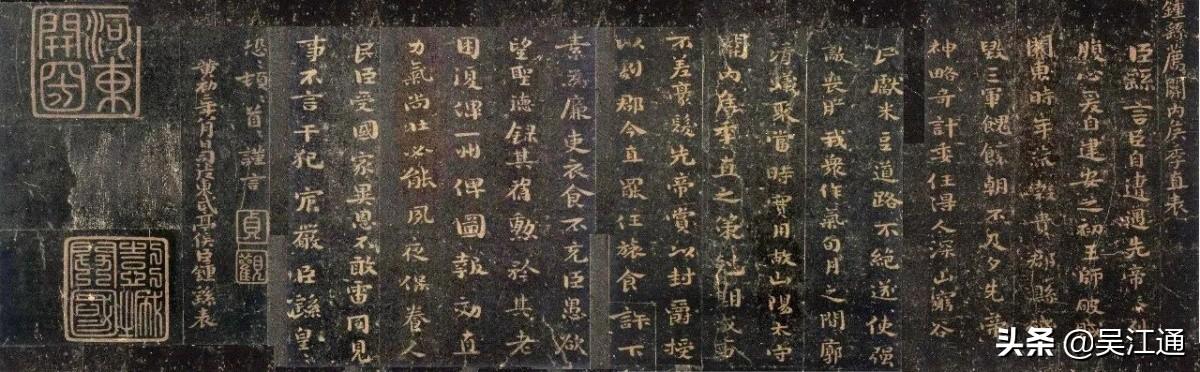 鍾繇薦關內侯季直表
臣繇言臣自遭遇先帝
腹心爰自建安之初王師破
關東時年荒穀貴郡縣
毀三軍餽饟朝不及夕先帝
神略奇計委任得人深山窮谷
民獻米豆道路不絕遂使強
敵喪膽我眾作氣旬月之間廓
清蟻聚當時實用故山陽太守
關內侯季直之策剋期成事
不差豪髮先帝賞以封爵授
以劇郡今直罷任旅食許下
素為廉吏衣食不充臣愚欲
望聖德錄其舊勳矜其老
困復俾一州俾圖報効直
力氣尚壯必能夙夜保養人
民臣受國家異恩不敢雷同見
事不言干犯宸嚴臣繇皇
恐頓首謹言
貞觀
黃初二年月日司徒東武亭侯臣鍾繇表
头条 @吴江通